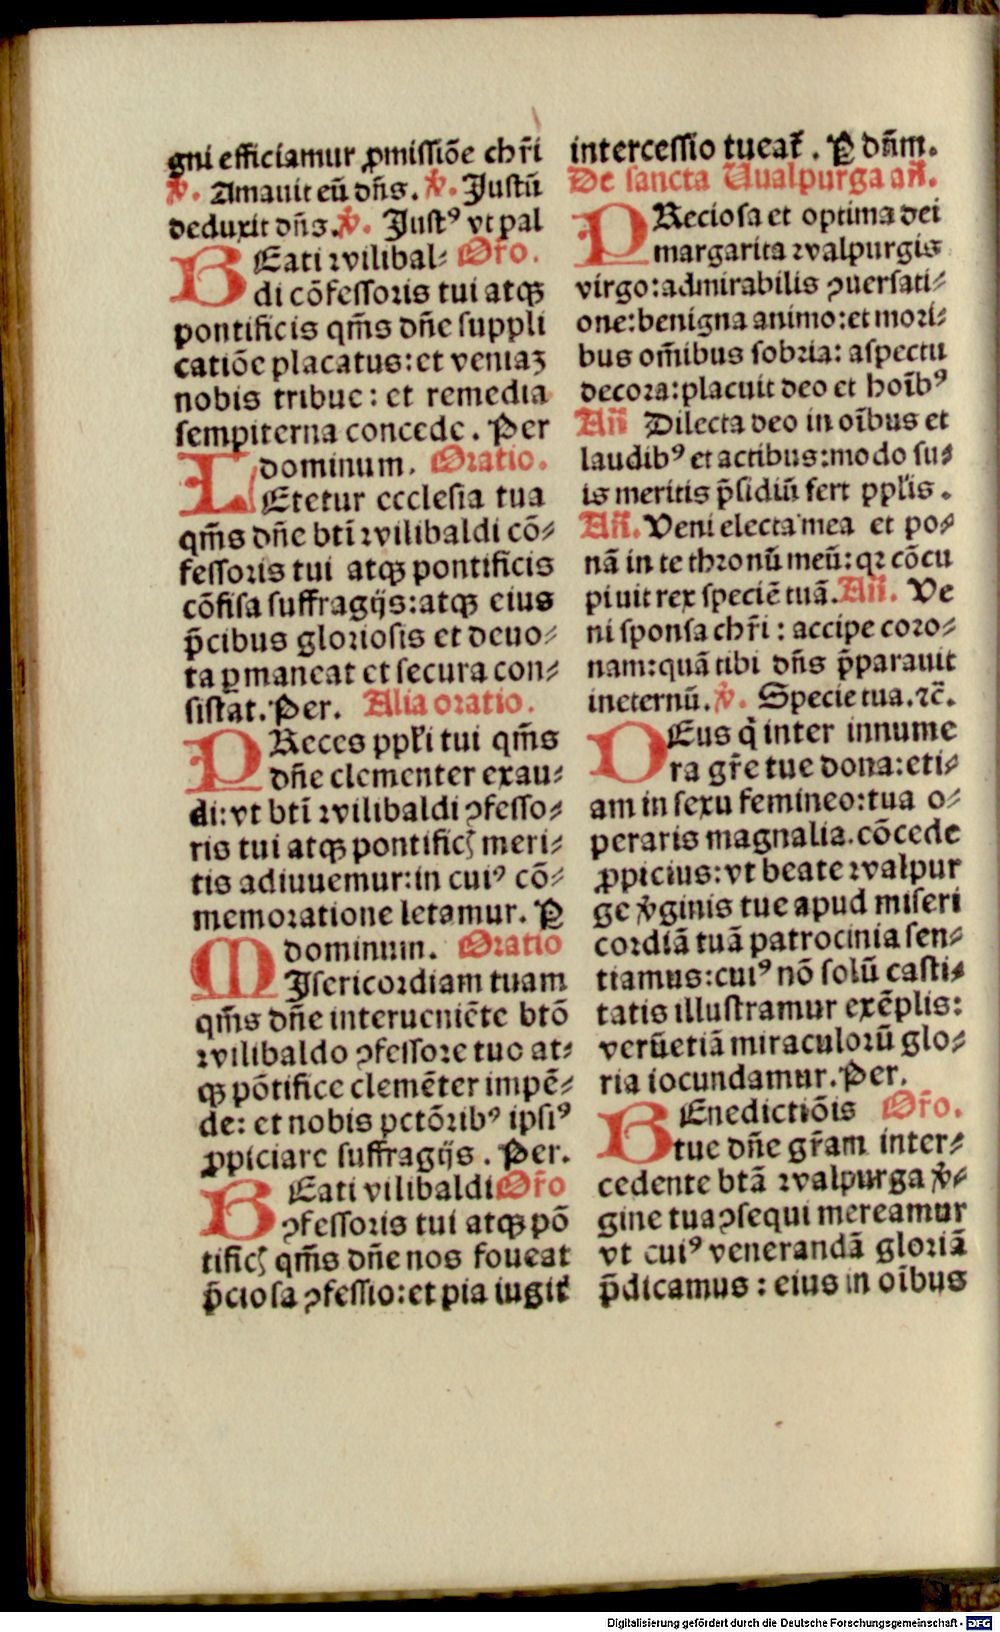 gni efficiamur ꝓmissiõe chr̃i
℣. Amauit eũ dñs. ℣. Justũ
deduxit dñs. ℣. Justꝰ vt pal
BEati wilibal⸗ Or̃o.
di cõfessoris tui atqꝫ
pontificis qm̃s dñe suppli
catiõe placatus: et veniaꝫ
nobis tribue: et remedia
sempiterna concede. Per
dominum. Oratio.
LEtetur ecclesia tua
qm̃s dñe bti̇̃ wilibaldi cõ⸗
fessoris tui atqꝫ pontificis
cõfisa suffragijs: atqꝫ eius
p̃cibus gloriosis et deuo⸗
ta ꝑmaneat et secura con⸗
sistat. Per. Alia oratio.
PReces ppl̃i tui qm̃s
dñe clementer exau⸗
di: vt bti̇̃ wilibaldi ꝯfesso⸗
ris tui atqꝫ pontificꝭ meri⸗
tis adiuuemur: in cuiꝰ cõ⸗
memoratione letamur. Ꝑ
dominum. Oratio
MIsericordiam tuam
qm̃s dñe interueniẽte btõ
wilibaldo ꝯfessore tuo at⸗
qꝫ põtifice clemẽter impẽ⸗
de: et nobis pctõribꝰ ipsiꝰ
ꝓpiciare suffragijs. Per.
BEati vilibaldi Or̃o
ꝯfessoris tui atqꝫ põ
tificꝭ qm̃s dñe nos foueat
p̃ciosa ꝯfessio: et pia iugit̃
intercessio tueat̃. Ꝑ dñm.
De sancta Uualpurga añ.
PReciosa et optima dei
margarita walpurgis
virgo: admirabilis ꝯuersati⸗
one: benigna animo: et mori⸗
bus om̃ibus sobria: aspectu
decora: placuit deo et hoi̇̃bꝰ
Añ Dilecta deo in oi̇̃bus et
laudibꝰ et actibus: modo su⸗
is meritis p̃sidiũ fert ppl̃is.
Añ. Veni electa mea et po⸗
nã in te thronũ meũ: qꝛ cõcu
piuit rex speciẽ tuã. Añ. Ve
ni sponsa chr̃i: accipe coro⸗
nam: quã tibi dñs p̃parauit
ineternũ. ℣. Specie tua. ⁊c̃.
DEus q̇ inter innume
ra gr̃e tue dona: eti⸗
am in sexu femineo: tua o⸗
peraris magnalia. cõcede
ꝓpicius: vt beate walpur
ge ℣ginis tue apud miseri
cordiã tuã patrocinia sen⸗
tiamus: cuiꝰ nõ solũ casti⸗
tatis illustramur exẽplis:
verũetiã miraculorũ glo⸗
ria iocundamur. Per.
BEnedictiõis Or̃o.
tue dñe gr̃am inter⸗
cedente btã walpurga ℣⸗
gine tua ꝯsequi mereamur
vt cuiꝰ venerandã gloriã
p̃dicamus: eius in oi̇̃bus
Digitalisierung gefördert durch die Deutsche Forschungsgemeinschaft - DFG